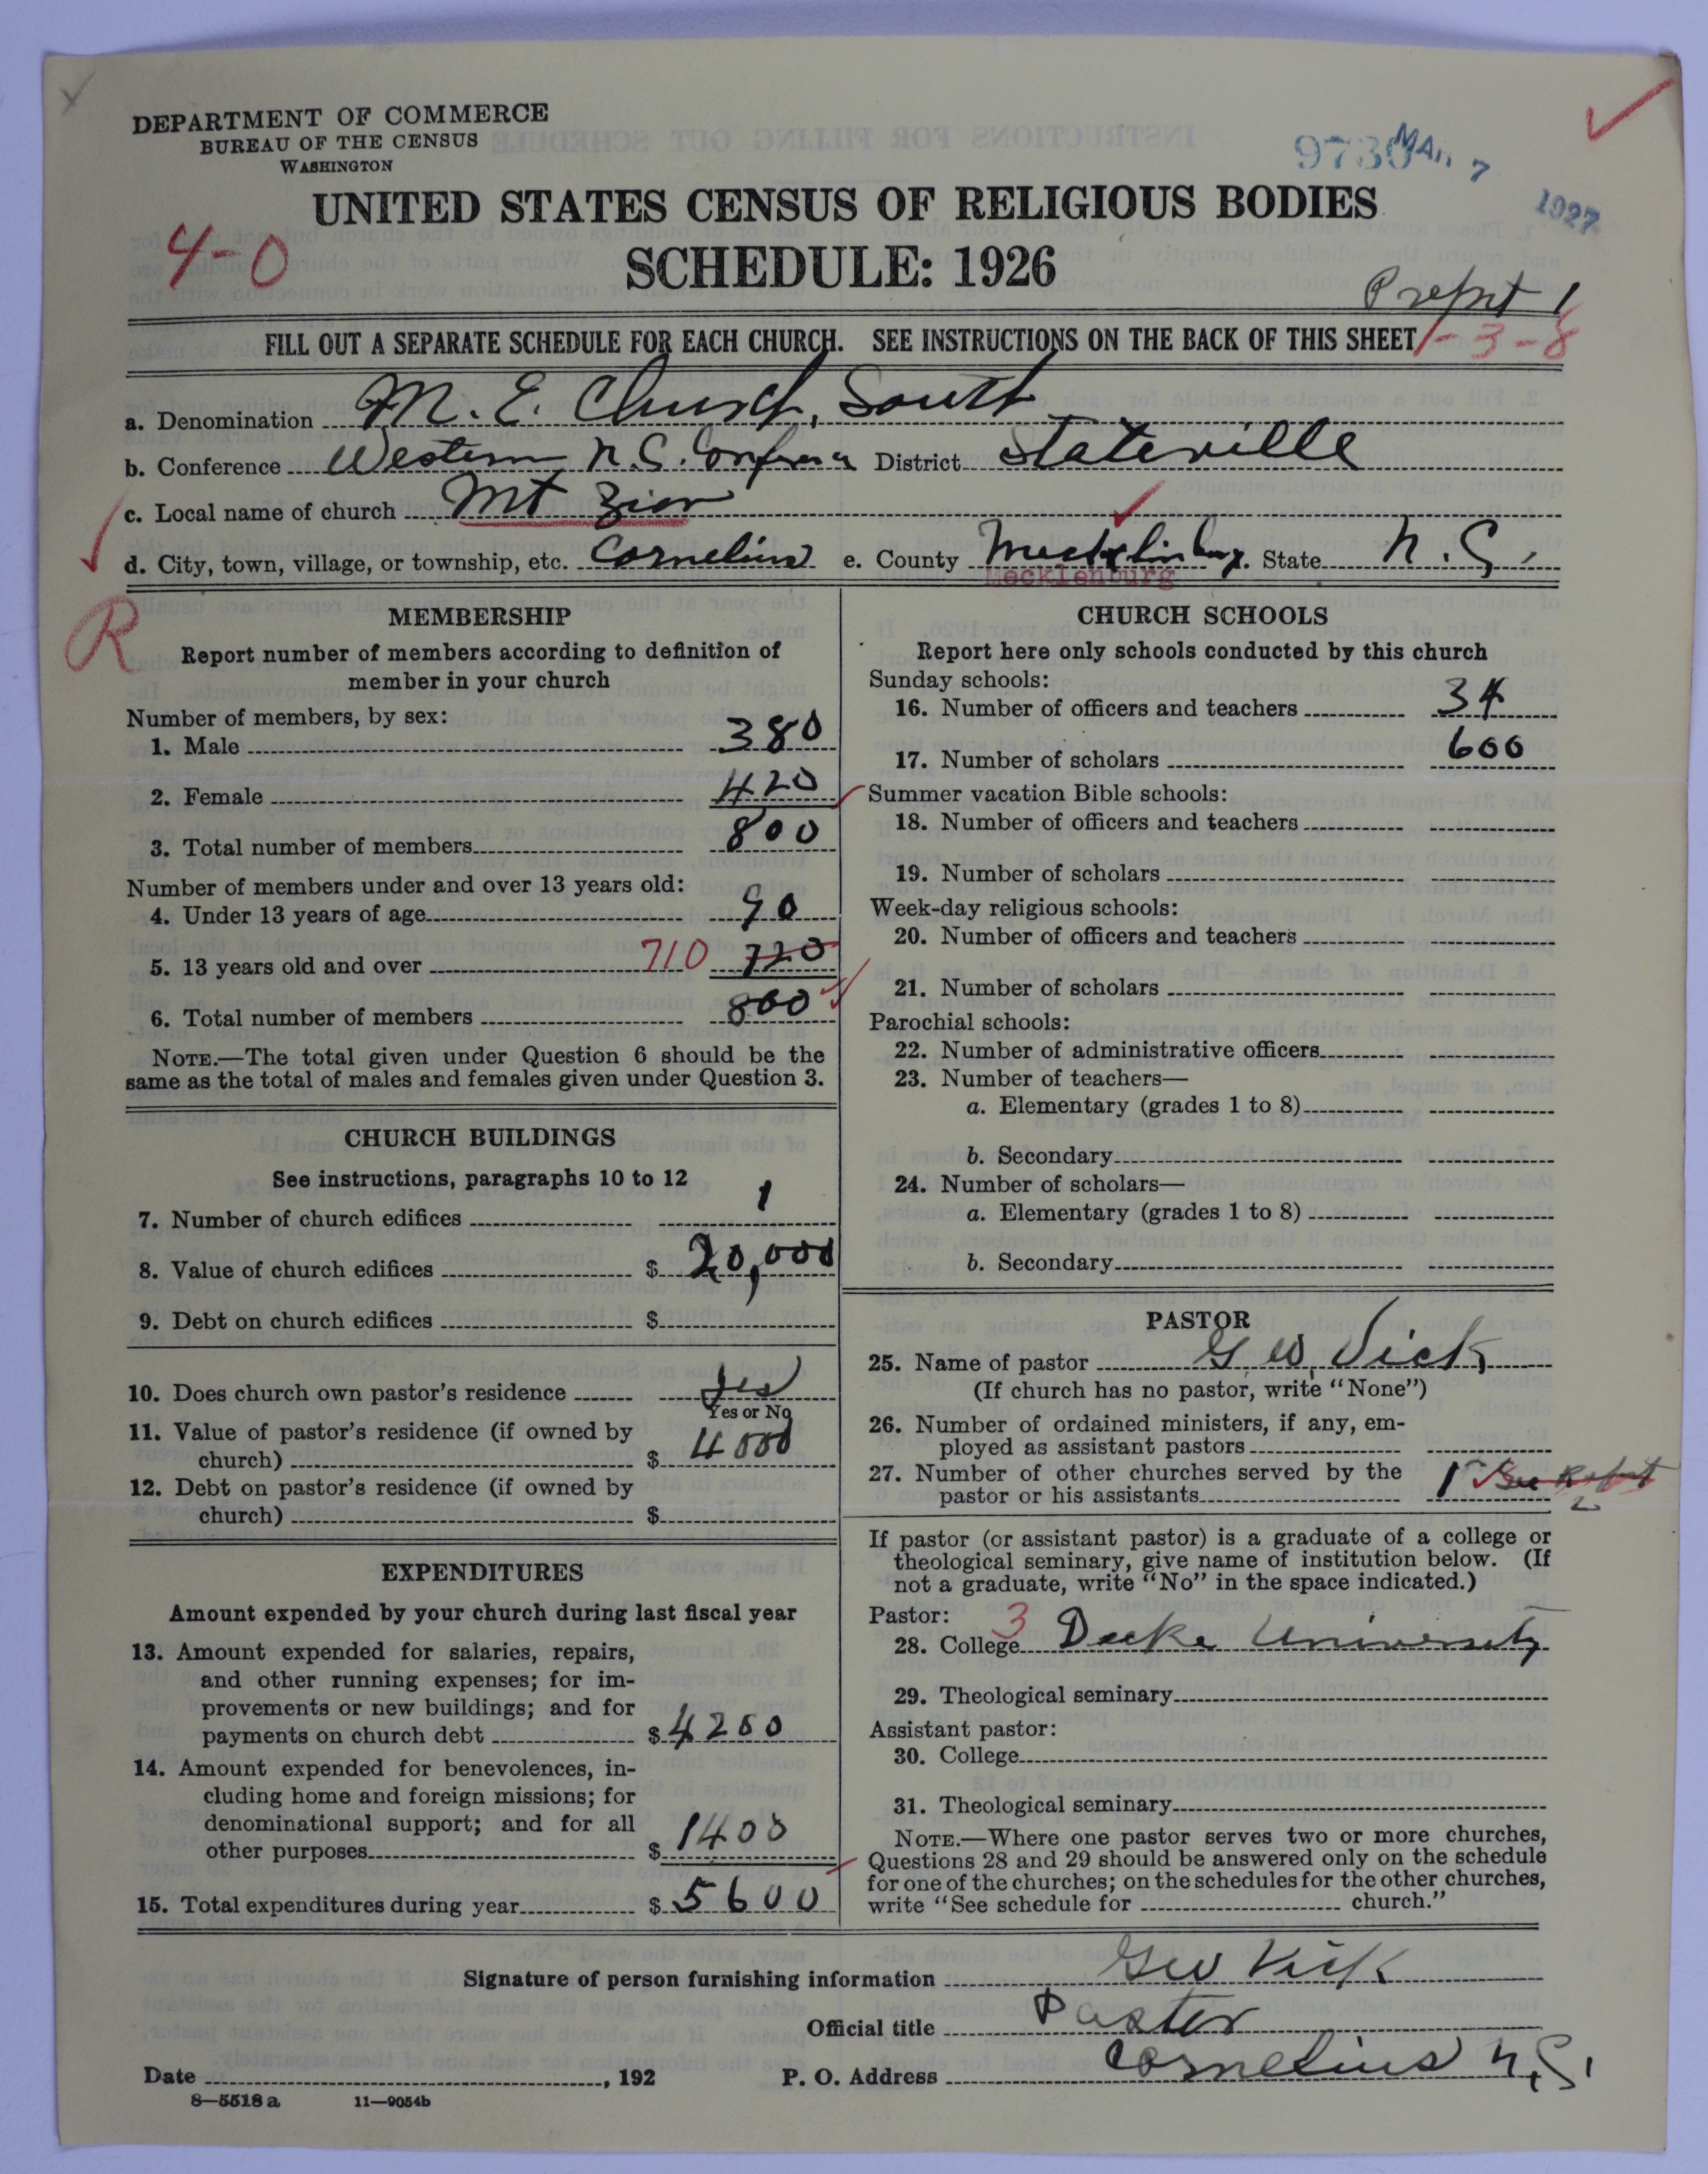 DEPARTMENT OF COMMERCE
BUREAU OF THE CENSUS
WASHINGTON
MAR 7 1927
UNITED STATES CENSUS OF RELIGIOUS BODIES
4-0
SCHEDULE: 1926
FILL OUT A SEPARATE SCHEDULE FOR EACH CHURCH. SEE INSTRUCTIONS ON THE BACK OF THIS SHEET
1-3-8
a. Denomination M. E. Church, South
b. Conference Western N.C. Conference District Stateville
c. Local name of church Mt Zion
d. City, town, village, or township, etc. Cornelius e. County Mecklinburg. State N. C.
Mecklenburg
R
MEMBERSHIP
Report number of members according to definition of
member in your church
Number of members, by sex:
1. Male 380
2. Female 420
3. Total number of members 800
Number of members under and over 13 years old:
4. Under 13 years of age 90
5. 13 years old and over 710 720
6. Total number of members 800
NOTE.—The total given under Question 6 should be the
same as the total of males and females given under Question 3.
CHURCH BUILDINGS
See instructions, paragraphs 10 to 12
7. Number of church edifices 1
8. Value of church edifices $ 20,000
9. Debt on church edifices $
10. Does church own pastor's residence yes
Yes or No
11. Value of pastor's residence (if owned by
church) $ 4000
12. Debt on pastor's residence (if owned by
church) $
EXPENDITURES
Amount expended by your church during last fiscal year
13. Amount expended for salaries, repairs,
and other running expenses; for im-
provements or new buildings; and for
payments on church debt $ 4200
14. Amount expended for benevolences, in-
cluding home and foreign missions; for
denominational support; and for all
other purposes $ 1400
15. Total expenditures during year $ 5600
CHURCH SCHOOLS
Report here only schools conducted by this church
Sunday schools:
16. Number of officers and teachers 34
17. Number of scholars 600
Summer vacation Bible schools:
18. Number of officers and teachers
19. Number of scholars
Week-day religious schools:
20. Number of officers and teachers
21. Number of scholars
Parochial schools:
22. Number of administrative officers
23. Number of teachers—
a. Elementary (grades 1 to 8)
b. Secondary
24. Number of scholars—
a. Elementary (grades 1 to 8)
b. Secondary
PASTOR
25. Name of pastor G W. Vick
(If church has no pastor, write "None")
26. Number of ordained ministers, if any, em-
ployed as assistant pastors
27. Number of other churches served by the
pastor or his assistants 1
If pastor (or assistant pastor) is a graduate of a college or
theological seminary, give name of institution below. (If
not a graduate, write "No" in the space indicated.)
Pastor: 3
28. College Duke University
29. Theological seminary
Assistant pastor:
30. College
31. Theological seminary
NOTE.—Where one pastor serves two or more churches,
Questions 28 and 29 should be answered only on the schedule
for one of the churches; on the schedules for the other churches,
write "See schedule for church."
Signature of person furnishing information G W Vick
Official title Pastor
Date , 192 P. O. Address Cornelius N.C.
8—5518 a 11—9054b